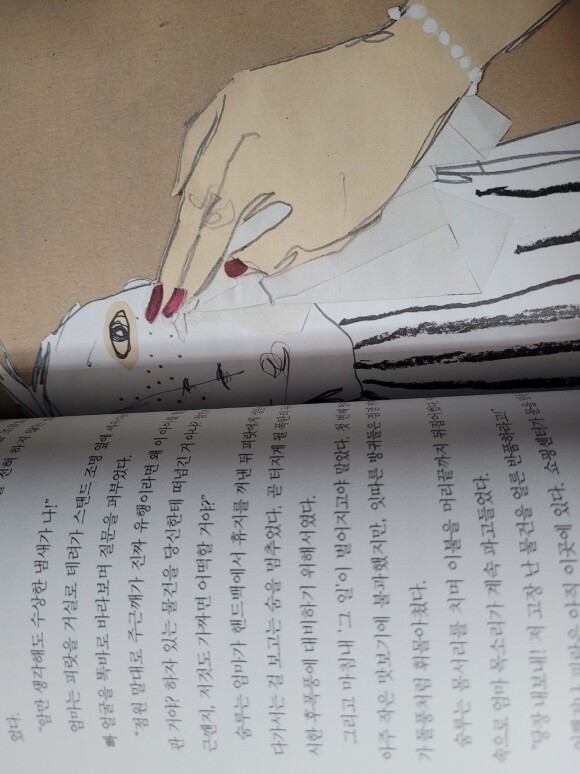 었다.
"암만 생각해도 수상한 냄새가 나!"
엄마는 피랏을 거실로 데려가 스탠드 조명 옆에
빠 얼굴을 똑바로 바라보며 질문을 퍼부었다.
"점원 말대로 주근깨가 진짜 유행이라면 왜 이 아이
판 거야? 하자 있는 물건을 당신한테 떠넘긴 거 아냐?
근깬지, 저것도 가짜면 어떡할 거야?"
숨루는 엄마가 핸드백에서 휴지를 꺼낸 뒤 피랏에게
다가서는 걸 보고는 숨을 멈추었다. 곧 터지게 될 폭탄의
시한 후폭풍에 대비하기 위해서였다.
그리고 마침내 '그 일'이 벌어지고야 말았다. 첫 번째
아주 작은 맛보기에 불과했지만, 잇따른 방귀들은 점점
가 돌풍처럼 휘몰아쳤다.
숨루는 몸서리를 치며 이불을 머리끝까지 뒤집어썼다
속으로 엄마 목소리가 계속 파고들었다.
"당장 내보내! 저 고장 난 물건을 얼른 반품하라고!
아직 이곳에 있다. 쇼핑센터가 문을